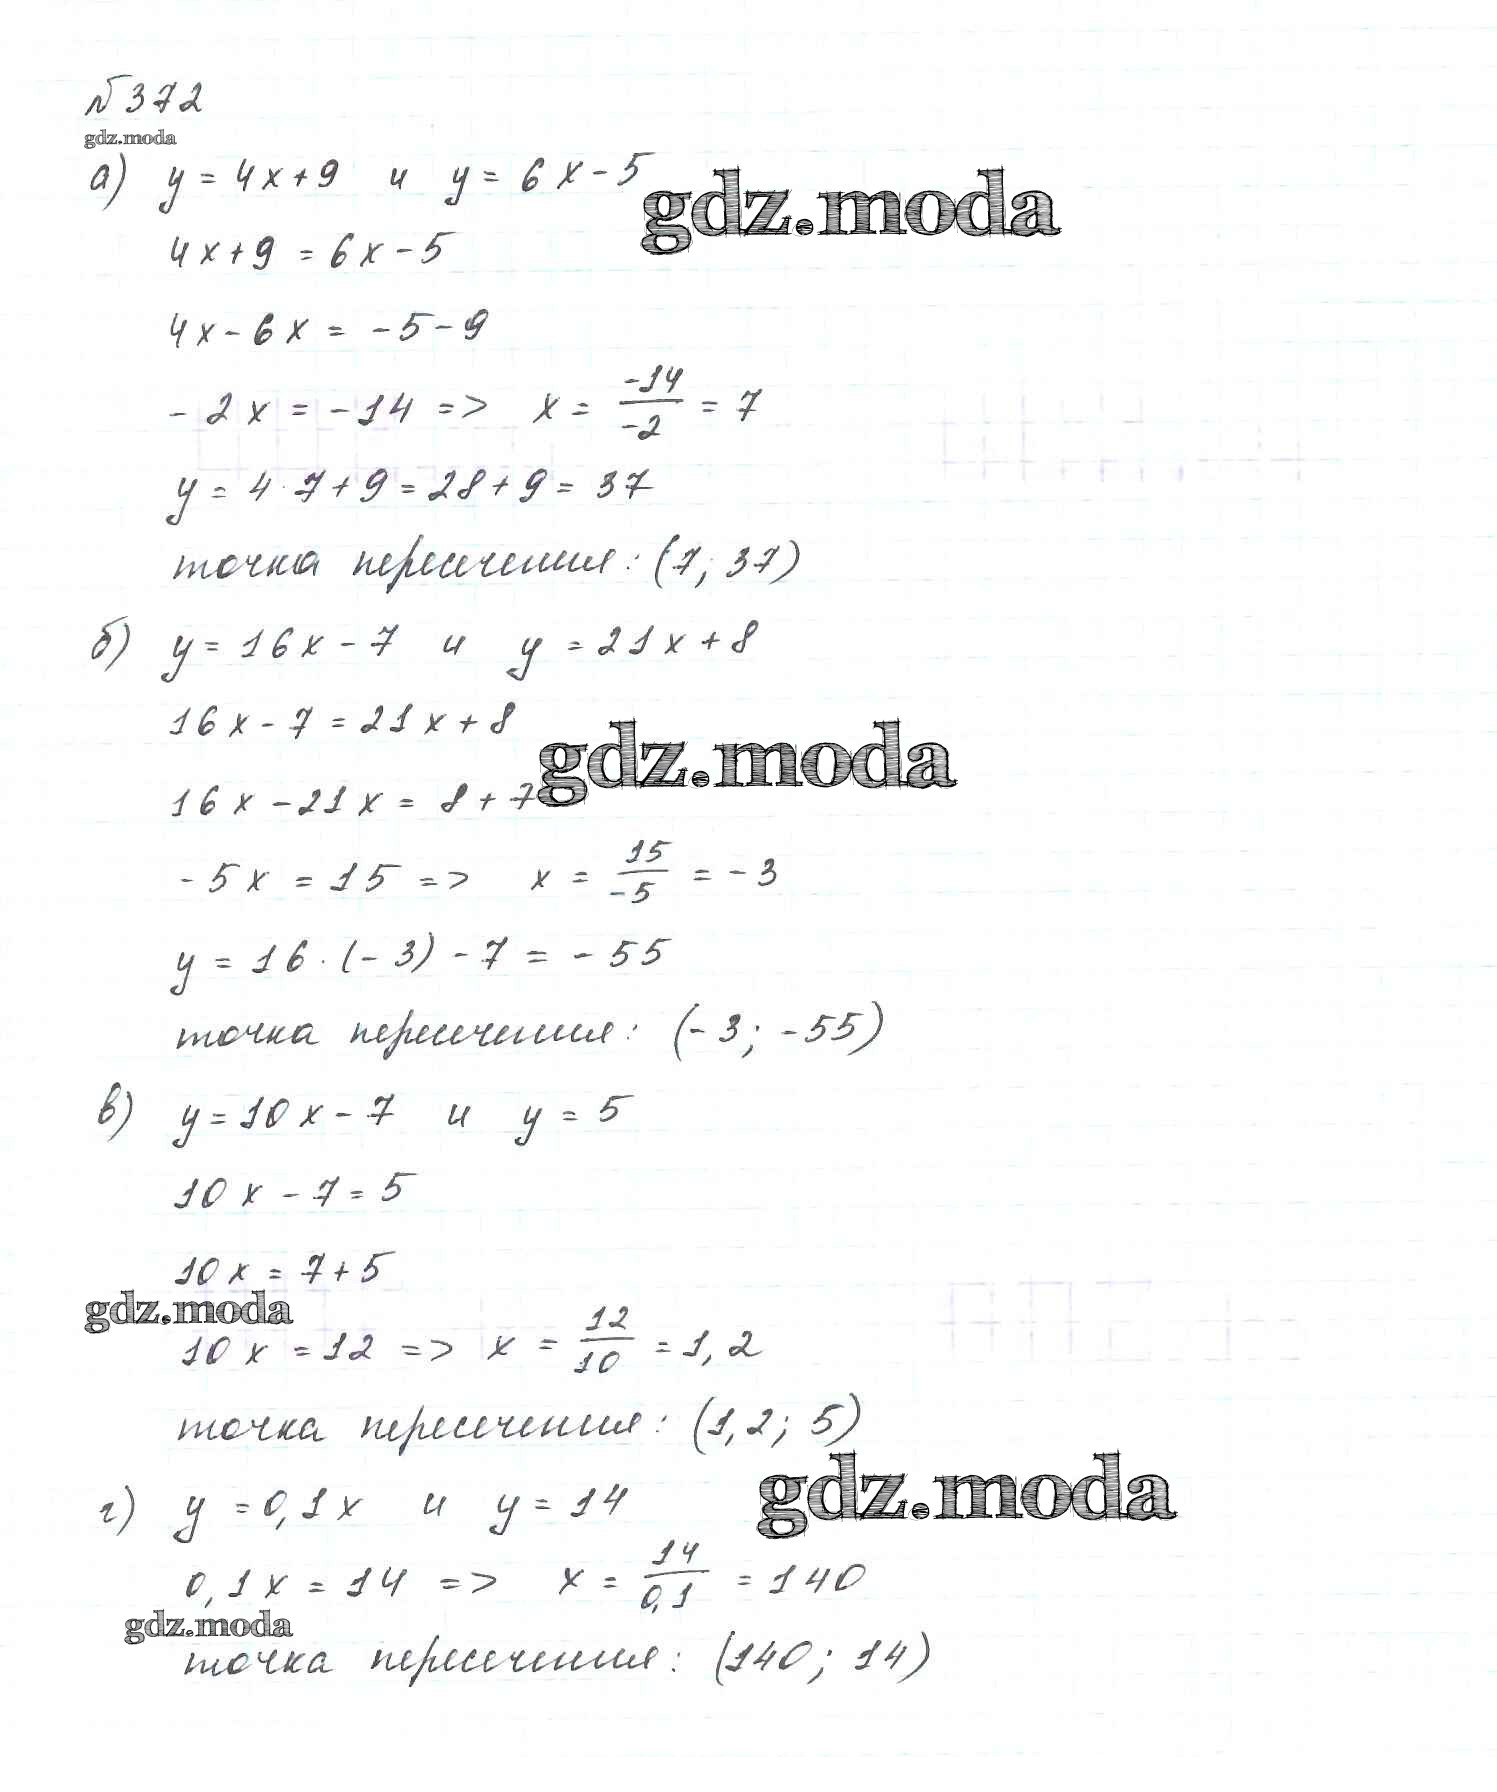 №372
gdz.moda
а) y = 4x + 9 и y = 6x - 5
gdz.moda
4x + 9 = 6x - 5
4x - 6x = -5 - 9
-2x = -14 => x = -14/-2 = 7
y = 4 · 7 + 9 = 28 + 9 = 37
точка пересечения: (7; 37)
б) y = 16x - 7 и y = 21x + 8
16x - 7 = 21x + 8
gdz.moda
16x - 21x = 8 + 7
-5x = 15 => x = 15/-5 = -3
y = 16 · (-3) - 7 = -55
точка пересечения: (-3; -55)
в) y = 10x - 7 и y = 5
10x - 7 = 5
10x = 7 + 5
gdz.moda
10x = 12 => x = 12/10 = 1,2
точка пересечения: (1,2; 5)
г) y = 0,1x и y = 14
gdz.moda
0,1x = 14 => x = 14/0,1 = 140
gdz.moda
точка пересечения: (140; 14)